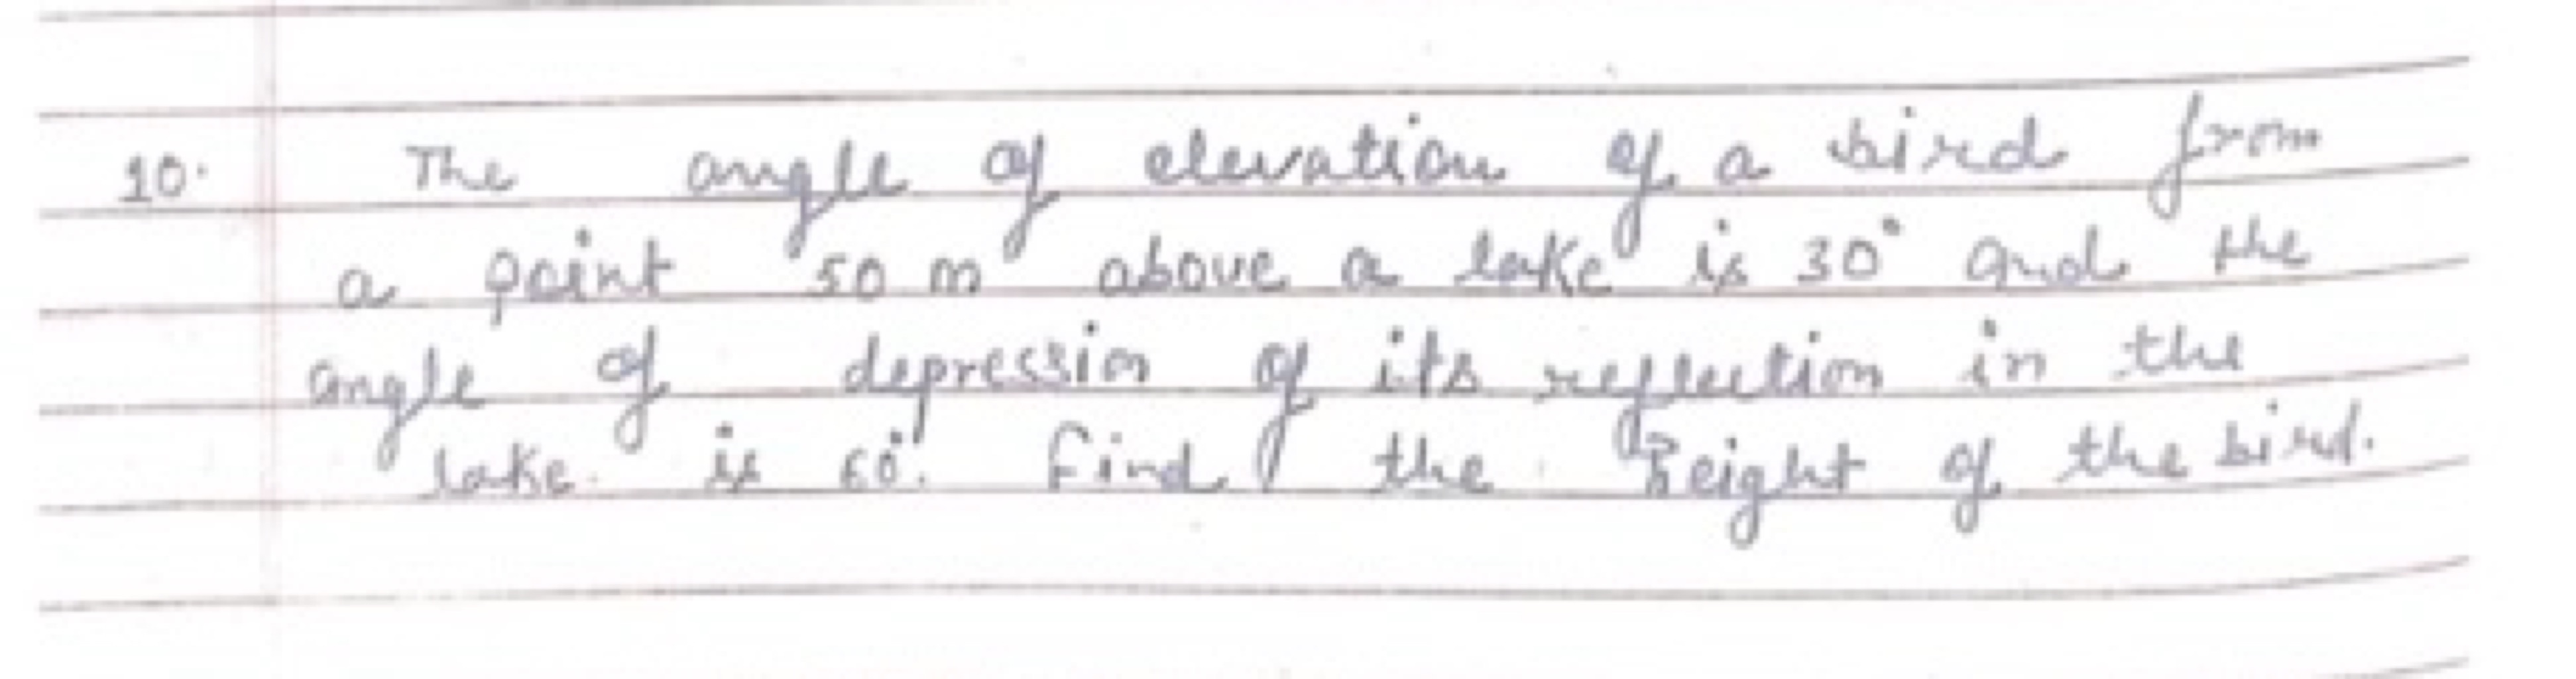 10. The angle of elevation of a bird from
a point 50 m above a lake is 30° and the
angle of depression of its reflection in the
lake. is 60°. Find the height of the bird.